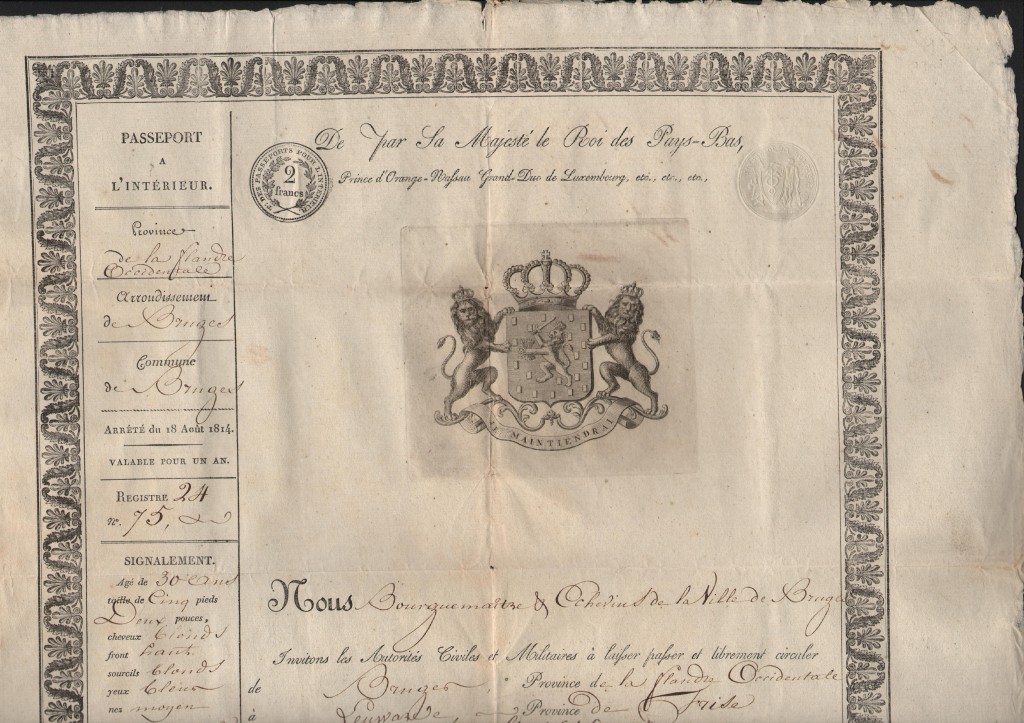 PASSEPORT
A
L'INTÉRIEUR.
Province
de la flandre
Occidentale
Arrondissement
de Bruges
Commune
de Bruges
ARRÊTÉ du 18 Août 1814.
VALABLE POUR UN AN.
REGISTRE 24
n.º 75,
SIGNALEMENT.
Agé de 30 Ans
taille de Cinq pieds
Deux pouces,
cheveux blonds
front haut
sourcils blonds
yeux bleus
nez moyen
De par Sa Majesté le Roi des Pays-Bas,
Prince d'Orange-Nassau Grand-Duc de Luxembourg, etc., etc., etc.,
PASSEPORTS POUR L'INTÉRIEUR
2
francs
JE MAINTIENDRAI
Nous Bourguemaître & Echevins de la Ville de Bruges
Invitons les Autorités Civiles et Militaires à laisser passer et librement circuler
de Bruges, Province de la flandre Occidentale
à Leuwarde, Province de Frise